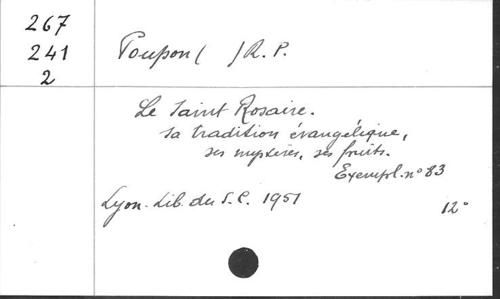 267
241
2
Poupon ( ) R. P.
Le Saint Rosaire.
sa tradition évangélique,
ses mystères, ses fruits.
Exempl. nº 83
Lyon. Lib. du S. C. 1951
12°